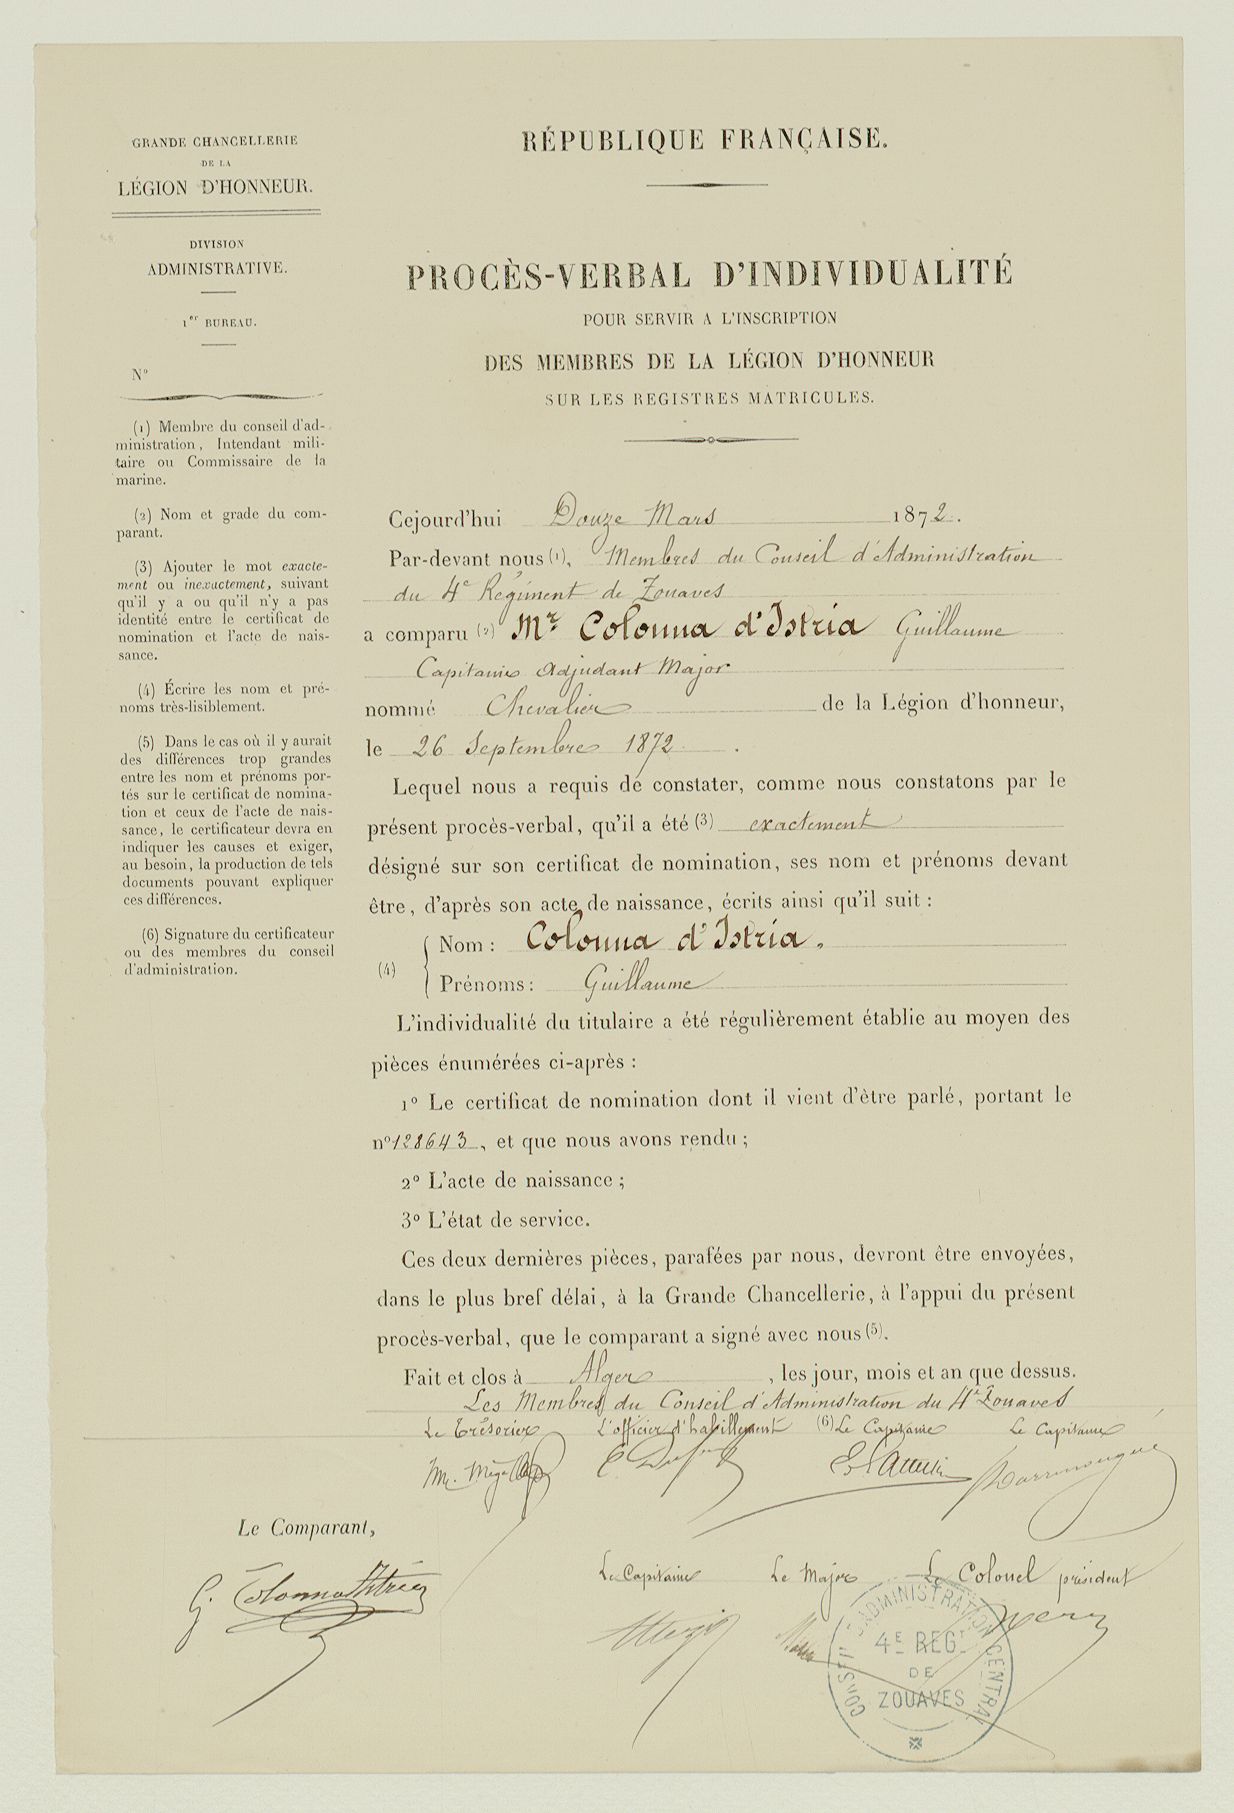 GRANDE CHANCELLERIE
DE LA
LÉGION D'HONNEUR.
DIVISION
ADMINISTRATIVE.
1er BUREAU.
N°
(1) Membre du conseil d'ad-
ministration, Intendant mili-
taire ou Commissaire de la
marine.
(2) Nom et grade du com-
parant.
(3) Ajouter le mot exacte-
ment ou inexactement, suivant
qu'il y a ou qu'il n'y a pas
identité entre le certificat de
nomination et l'acte de nais-
sance.
(4) Écrire les nom et pré-
noms très-lisiblement.
(5) Dans le cas où il y aurait
des différences trop grandes
entre les nom et prénoms por-
tés sur le certificat de nomina-
tion et ceux de l'acte de nais-
sance, le certificateur devra en
indiquer les causes et exiger,
au besoin, la production de tels
documents pouvant expliquer
ces différences.
(6) Signature du certificateur
ou des membres du conseil
d'administration.
RÉPUBLIQUE FRANÇAISE.
PROCÈS-VERBAL D'INDIVIDUALITÉ
POUR SERVIR A L'INSCRIPTION
DES MEMBRES DE LA LÉGION D'HONNEUR
SUR LES REGISTRES MATRICULES.
Cejourd'hui Douze Mars 1872.
Par-devant nous (1), Membres du Conseil d'Administration
du 4e Régiment de Zouaves
a comparu (2) Mr Colonna d'Istria Guillaume
Capitaine adjudant Major
nommé Chevalier de la Légion d'honneur,
le 26 Septembre 1872.
Lequel nous a requis de constater, comme nous constatons par le
présent procès-verbal, qu'il a été (3) exactement
désigné sur son certificat de nomination, ses nom et prénoms devant
être, d'après son acte de naissance, écrits ainsi qu'il suit :
(4) { Nom : Colonna d'Istria.
Prénoms : Guillaume
L'individualité du titulaire a été régulièrement établie au moyen des
pièces énumérées ci-après :
1° Le certificat de nomination dont il vient d'être parlé, portant le
n° 128643, et que nous avons rendu ;
2° L'acte de naissance ;
3° L'état de service.
Ces deux dernières pièces, parafées par nous, devront être envoyées,
dans le plus bref délai, à la Grande Chancellerie, à l'appui du présent
procès-verbal, que le comparant a signé avec nous (5).
Fait et clos à Alger, les jour, mois et an que dessus.
Les Membres du Conseil d'Administration du 4e Zouaves
Le Trésorier L'officier d'habillement (6) Le Capitaine Le Capitaine
Le Comparant,
G. Colonna d'Istria
Le Capitaine Le Major Le Colonel président
CONSEIL D'ADMINISTRATION CENTRAL
4E REGT
DE
ZOUAVES